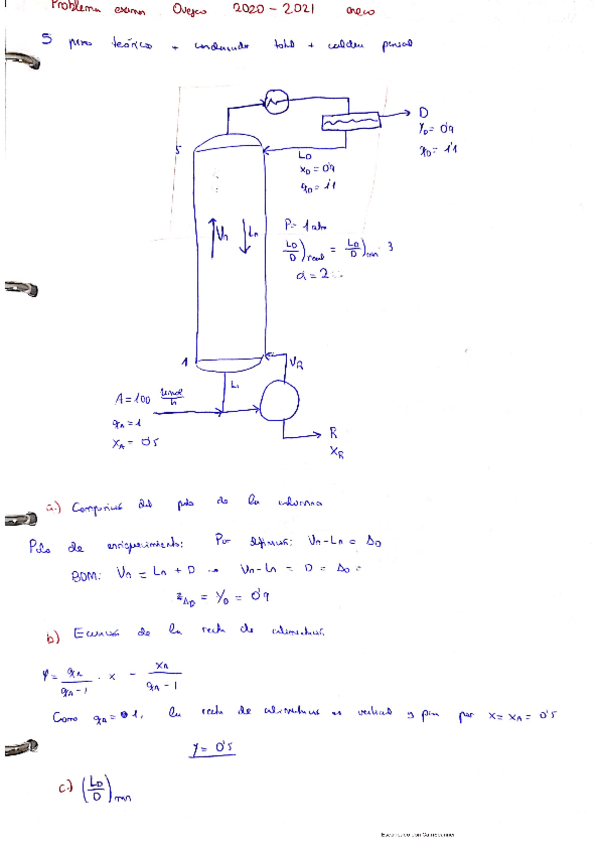 Problema examen Oviedo 2020-2021 enero
5 pisos teóricos + condensador total + caldera parcial
D
y_D = 0'9
q_D = 1'1
5
L_D
x_D = 0'9
q_D = 1'1
P = 1 atm
V_n L_n
L_D/D)real = L_D/D)min · 3
α = 2
1
V_R
L_1
A = 100 kmol/h
q_A = 1
x_A = 0'5
R
x_R
a.) Composición del polo de la columna
Polo de enriquecimiento: Por definición: V_n - L_n = Δ_D
BDM: V_n = L_n + D → V_n - L_n = D = Δ_D =
z_ΔD = y_D = 0'9
b.) Ecuación de la recta de alimentación.
y = q_A/(q_A - 1) · x - x_A/(q_A - 1)
Como q_A = 1, la recta de alimentación es vertical y pasa por x = x_A = 0'5
y = 0'5
c.) (L_D/D)min
Escaneado con CamScanner